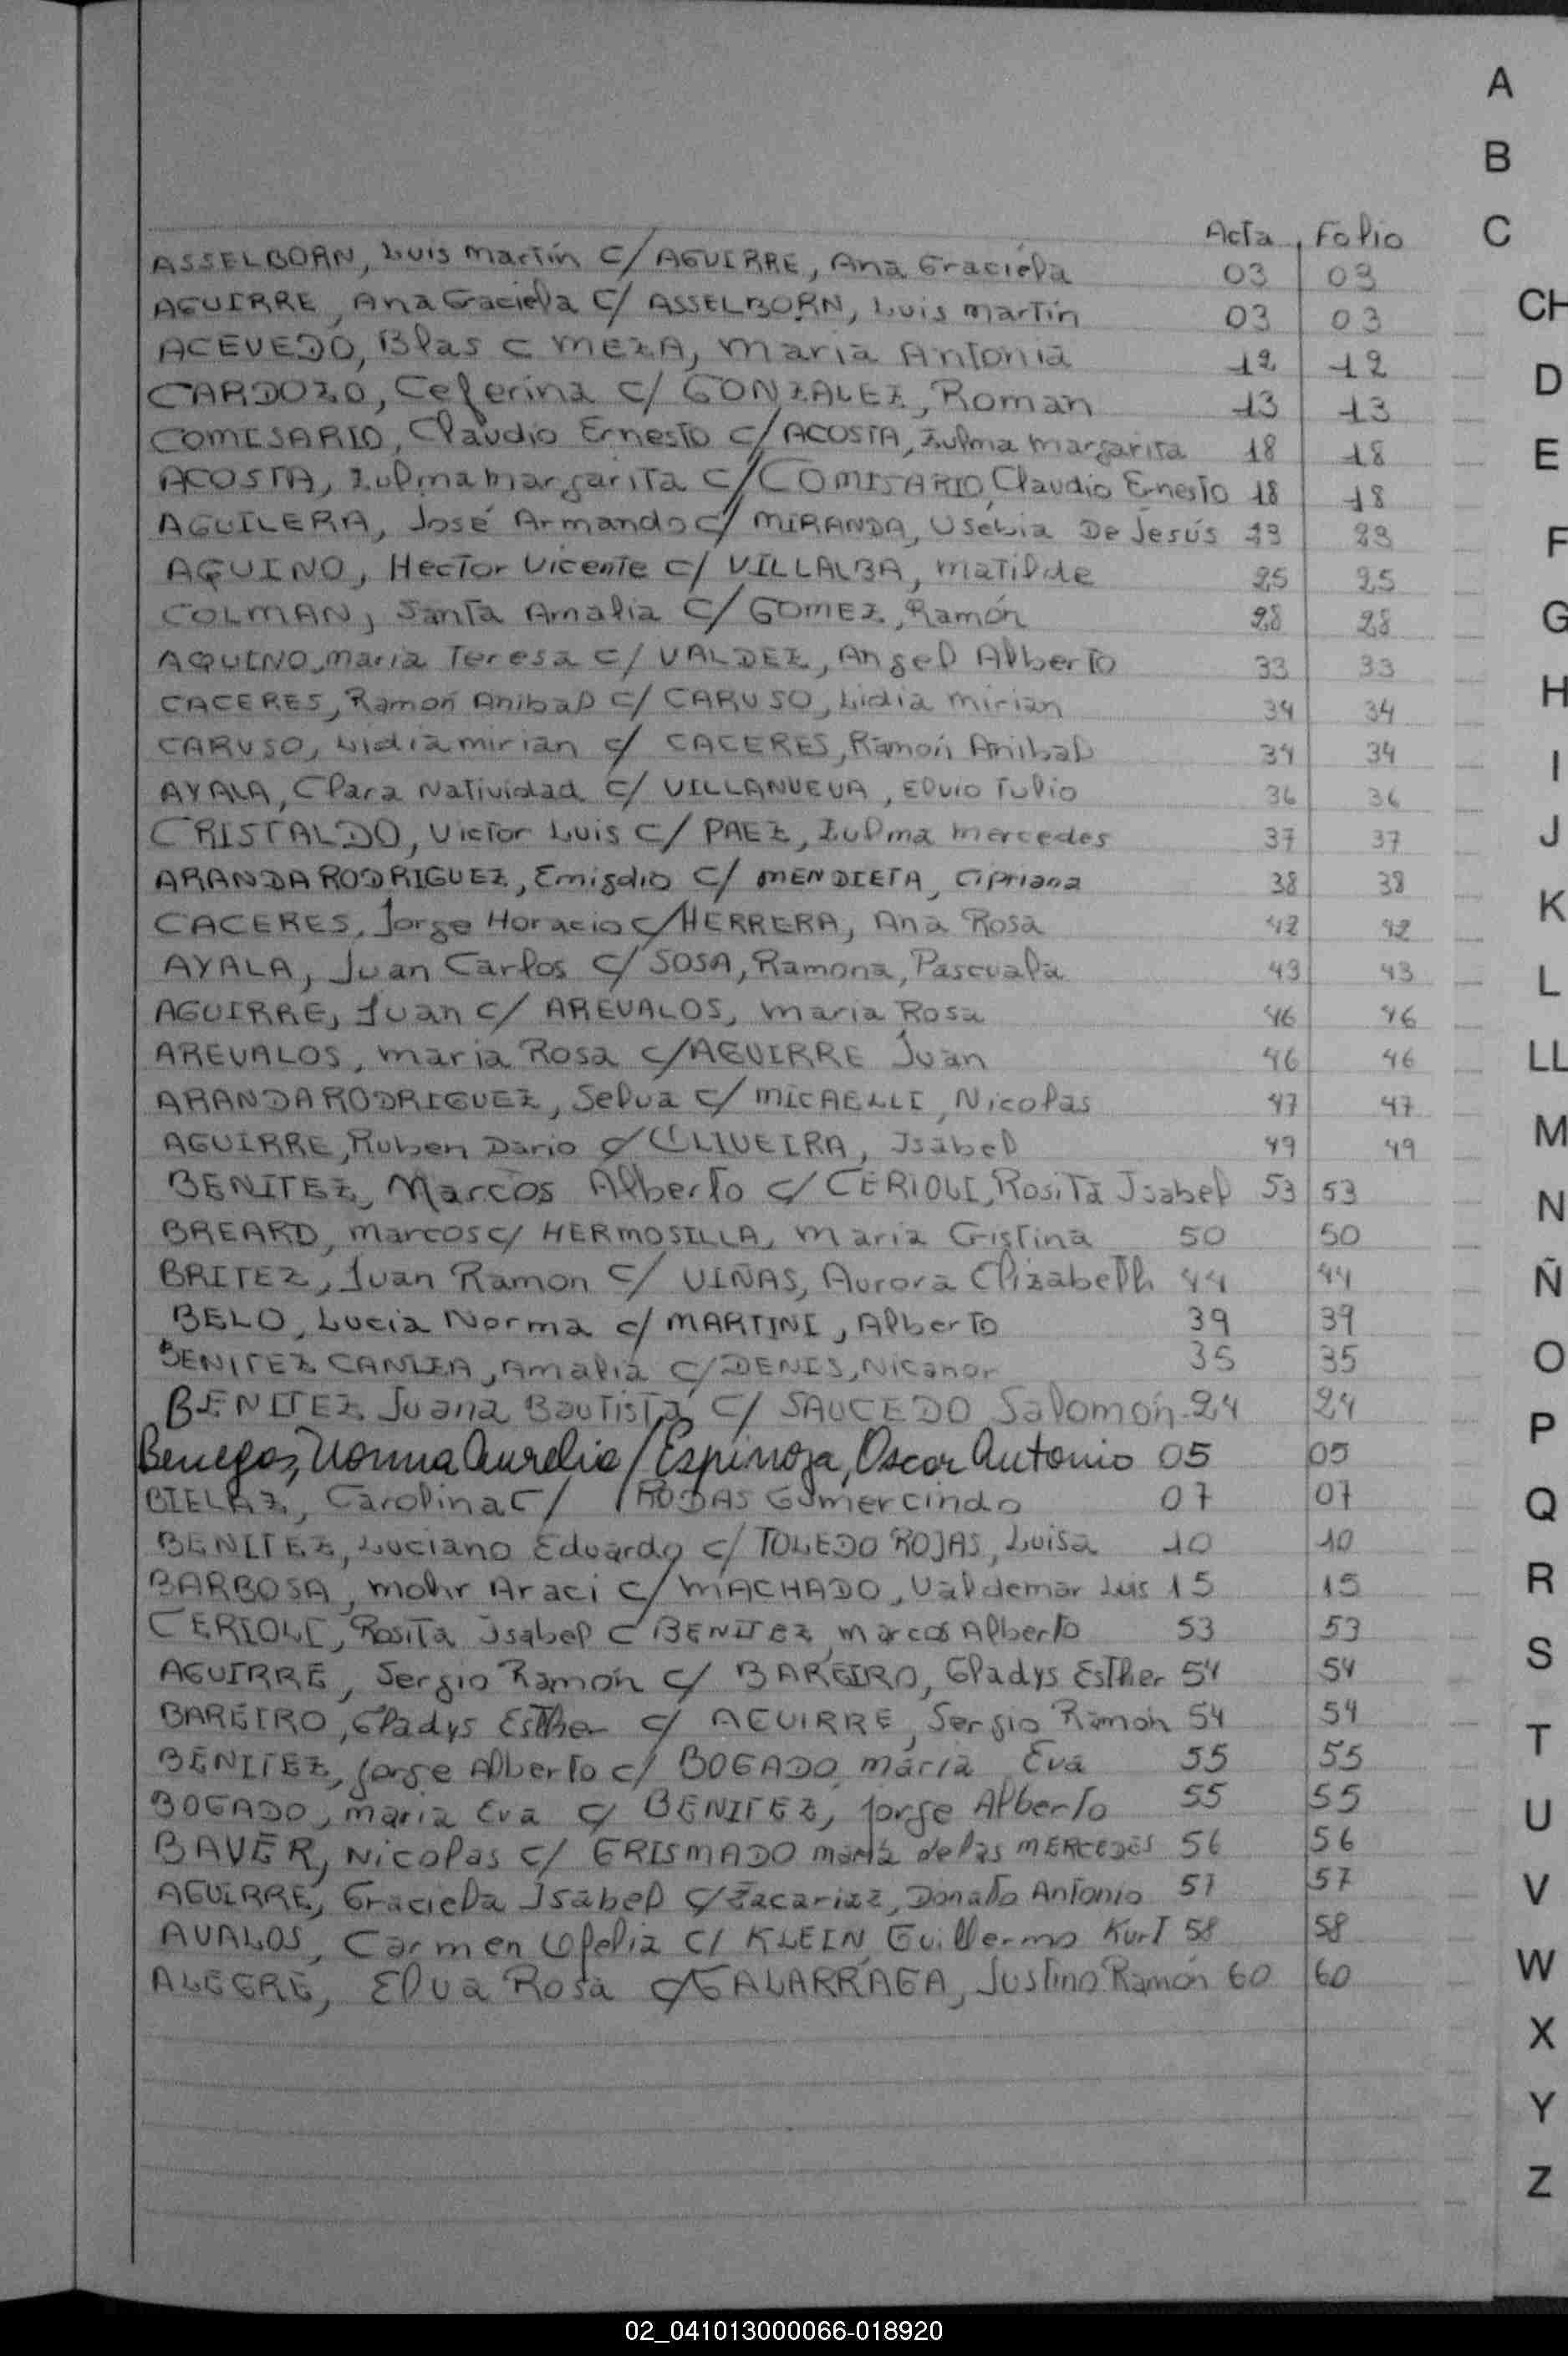 Acta Folio
ASSELBORN, Luis Martín C/ AGUIRRE, Ana Graciela 03 03
AGUIRRE, Ana Graciela C/ ASSELBORN, Luis Martín 03 03
ACEVEDO, Blas C MEZA, Maria Antonia 12 12
CARDOZO, Ceferina C/ GONZALEZ, Roman 13 13
COMISARIO, Claudio Ernesto C/ ACOSTA, Zulma Margarita 18 18
ACOSTA, Zulma Margarita C/ COMISARIO, Claudio Ernesto 18 18
AGUILERA, José Armando C/ MIRANDA, Usebia De Jesús 23 23
AQUINO, Hector Vicente C/ VILLALBA, Matilde 25 25
COLMAN, Santa Amalia C/ GOMEZ, Ramón 28 28
AQUINO, Maria Teresa C/ VALDEZ, Angel Alberto 33 33
CACERES, Ramón Anibal C/ CARUSO, Lidia Mirian 34 34
CARUSO, Lidia Mirian C/ CACERES, Ramón Anibal 34 34
AYALA, Clara Natividad C/ VILLANUEVA, Elvio Tulio 36 36
CRISTALDO, Victor Luis C/ PAEZ, Zulma Mercedes 37 37
ARANDA RODRIGUEZ, Emigdio C/ MENDIETA, Cipriana 38 38
CACERES, Jorge Horacio C/ HERRERA, Ana Rosa 42 42
AYALA, Juan Carlos C/ SOSA, Ramona, Pascuala 43 43
AGUIRRE, Juan C/ AREVALOS, Maria Rosa 46 46
AREVALOS, Maria Rosa C/ AGUIRRE Juan 46 46
ARANDA RODRIGUEZ, Selva C/ MICAELLI, Nicolas 47 47
AGUIRRE, Ruben Dario C/ OLIVEIRA, Isabel 49 49
BENITEZ, Marcos Alberto C/ CERIOLI, Rosita Isabel 53 53
BREARD, Marcos C/ HERMOSILLA, Maria Cristina 50 50
BRITEZ, Juan Ramon C/ VIÑAS, Aurora Elizabeth 44 44
BELO, Lucia Norma C/ MARTINI, Alberto 39 39
BENITEZ CANIZA, Amalia C/ DENIS, Nicanor 35 35
BENITEZ Juana Bautista C/ SAUCEDO Salomón 24 24
Benegas, Norma Aurelia / Espinoza, Oscar Antonio 05 05
BIELAZ, Carolina C/ RODAS Gumercindo 07 07
BENITEZ, Luciano Eduardo C/ TOLEDO ROJAS, Luisa 10 10
BARBOSA, Mohr Araci C/ MACHADO, Valdemar Luis 15 15
CERIOLI, Rosita Isabel C BENITEZ, Marcos Alberto 53 53
AGUIRRE, Sergio Ramón C/ BAREIRO, Gladys Esther 54 54
BAREIRO, Gladys Esther C/ AGUIRRE, Sergio Ramón 54 54
BENITEZ, Jorge Alberto C/ BOGADO, María Eva 55 55
BOGADO, Maria Eva C/ BENITEZ, Jorge Alberto 55 55
BAVER, Nicolas C/ GRISMADO María de las MERCEDES 56 56
AGUIRRE, Graciela Isabel C/ Zacariaz, Donato Antonio 57 57
AVALOS, Carmen Ofelia C/ KLEIN, Guillermo Kurt 58 58
ALEGRE, Elva Rosa C/ GALARRAGA, Justino Ramón 60 60
A
B
C
CH
D
E
F
G
H
I
J
K
L
LL
M
N
Ñ
O
P
Q
R
S
T
U
V
W
X
Y
Z
02_041013000066-018920